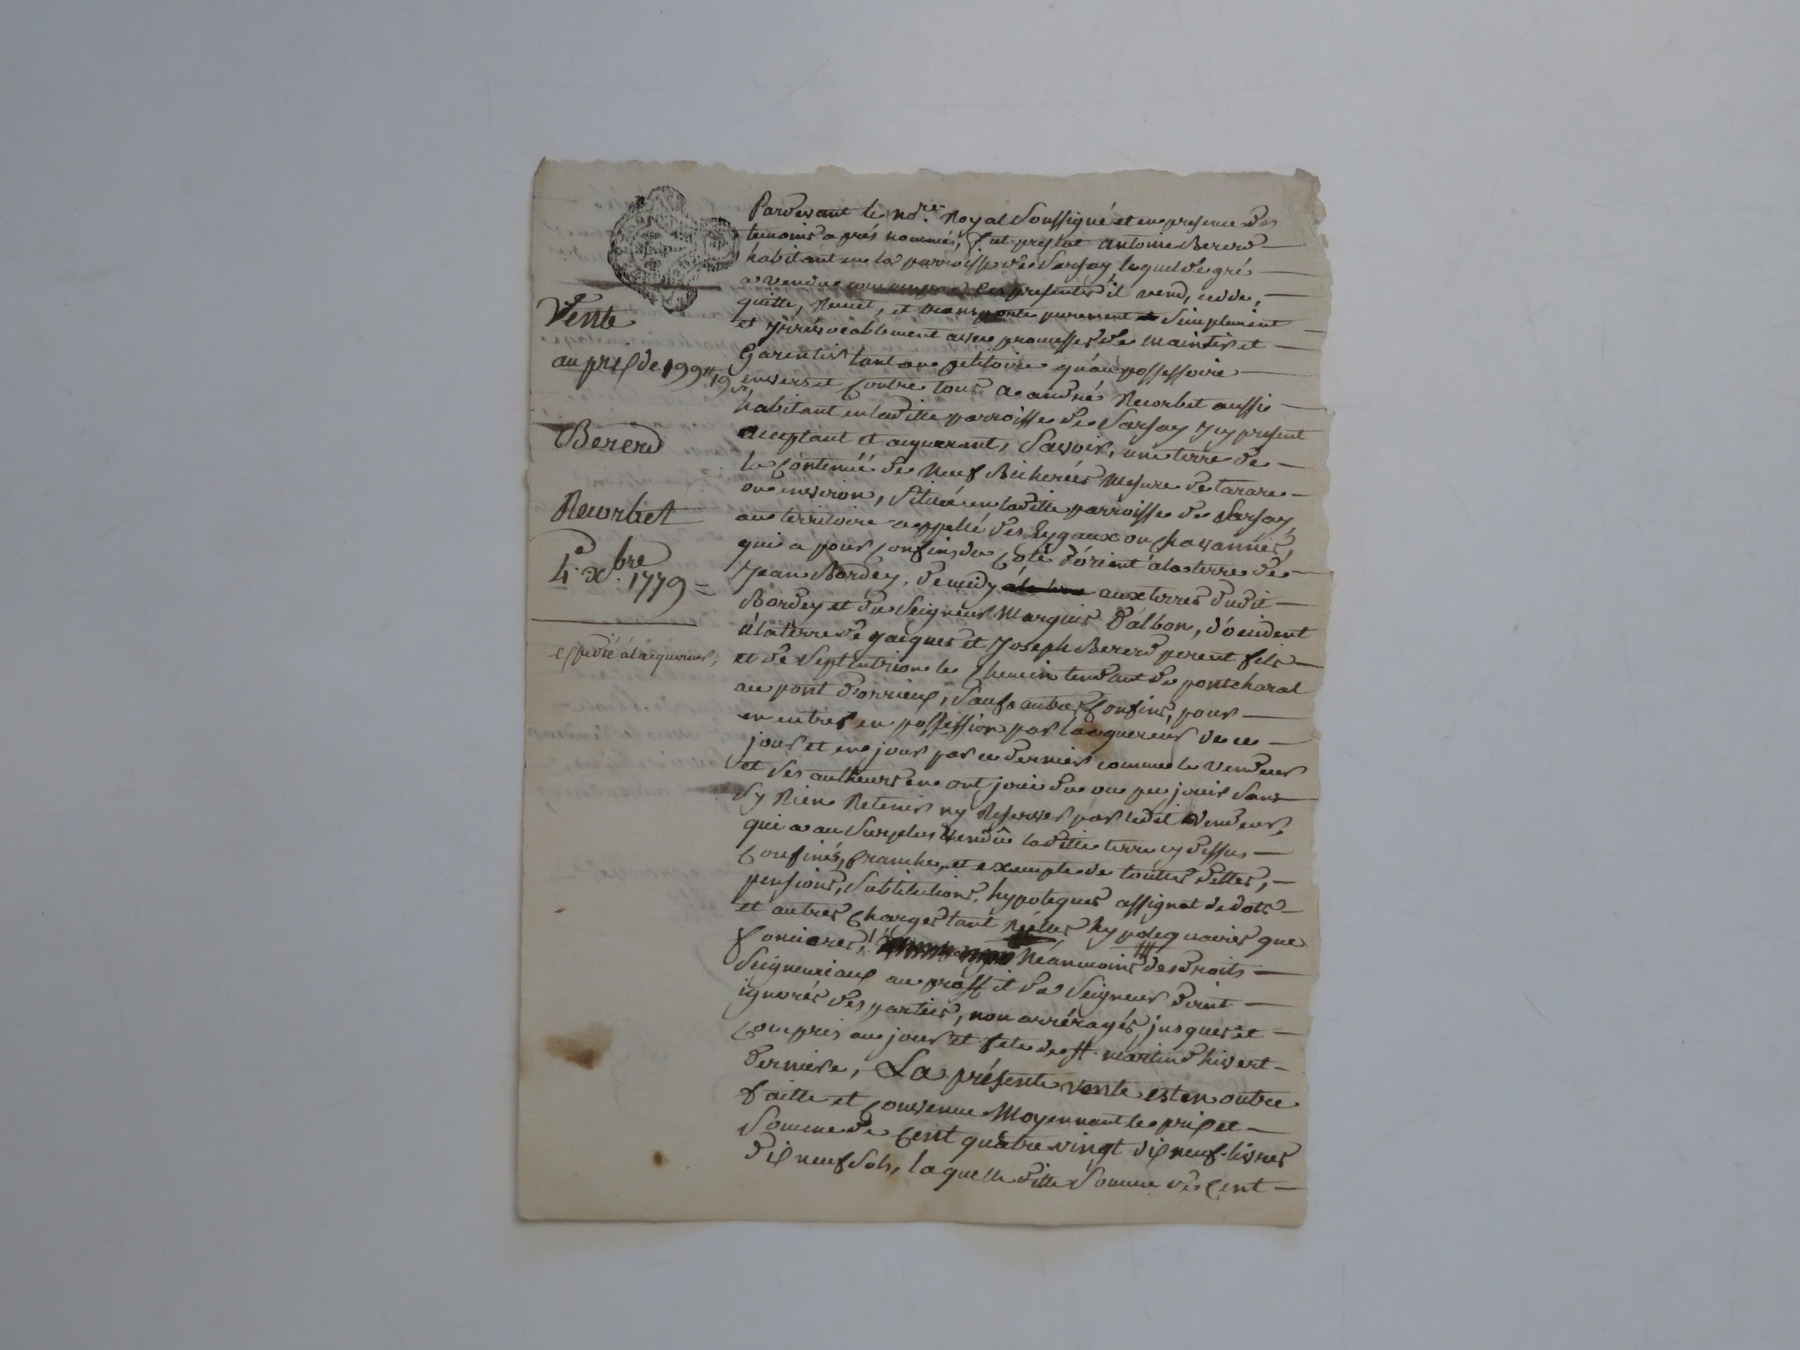 Vente
au prix de 199ᵗᵗ 19ˢ
Bererd
Recorbet
4e xbre 1779 =
expedié al'acquereur,
Pardevant le nore. Royal Soussigné et en presence des
temoins aprés nommés, fut present antoine Bererd
habitant en la parroisse de Sarsay lequel de gré
a vendu comme par Ces presentes il vend, cedde,
quitte, Remet, et transporte purement et Simplement
et yrrévocablement avec promesse de maintenir et
Garentir tant au petitoire qu'au possessoire
envers et Contre tous a andré Recorbet aussi
habitant en laditte parroisse de Sarsay Icy present
acceptant et acquerant, Savoir, une terre de
la Contenüe de Neuf Bicherées Mesure de tarare
ou environ, Située en laditte parroisse de Sarsay,
au territoire appellé des Eygaux ou Chavannes,
qui a pour Confins du Coté d'orient a la terre de
Jean Bordey, de midy aux terres dudit
Bordey et du Seigneur Marquis D'albon, d'occident
a la terre de Jacques et Joseph Bererd pere et fils
et de Septentrion le Chemin tendant de pontcharal
au pont Dorrieux, Sauf autres Confins, pour
en entrer en possession par l'acquereur de ce
jour et en jouir par ce dernier comme le vendeur
et Ses autheurs en ont joui du ou pu jouir Sans
Sy Rien Retenir ny Reserver par ledit vendeur,
qui a au Surplus Vendû laditte terre cy dessus
Confinés, franche, et exempte de toutes dettes,
pensions, Substitutions, hypoteques assignat de dots
et autres Charges tant Réélles hypotequaires que
foncieres, Néanmoins des Droits
Seigneuriaux au proffit du Seigneur Dirint
ignorés des parties, non arréragés jusques et
Compris au jour et fete de St. martin d'hivert
derniere, La présente vente est en outre
faitte et Convenue Moyennant le prix et
Somme de Cent quatre vingt dix neuf livres
dix neuf sols, laquelle ditte Somme de Cent